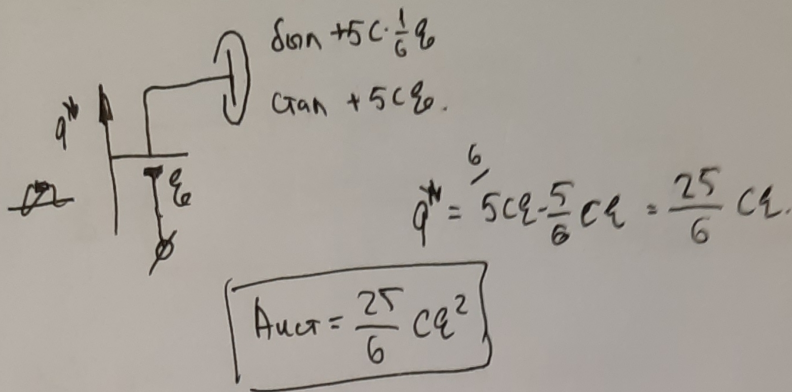 был +5C·1/6 ℰ
стал +5Cℰ.
q*
ℰ
q* = 5Cℰ - 5/6 Cℰ = 25/6 Cℰ.
Aист = 25/6 Cℰ²